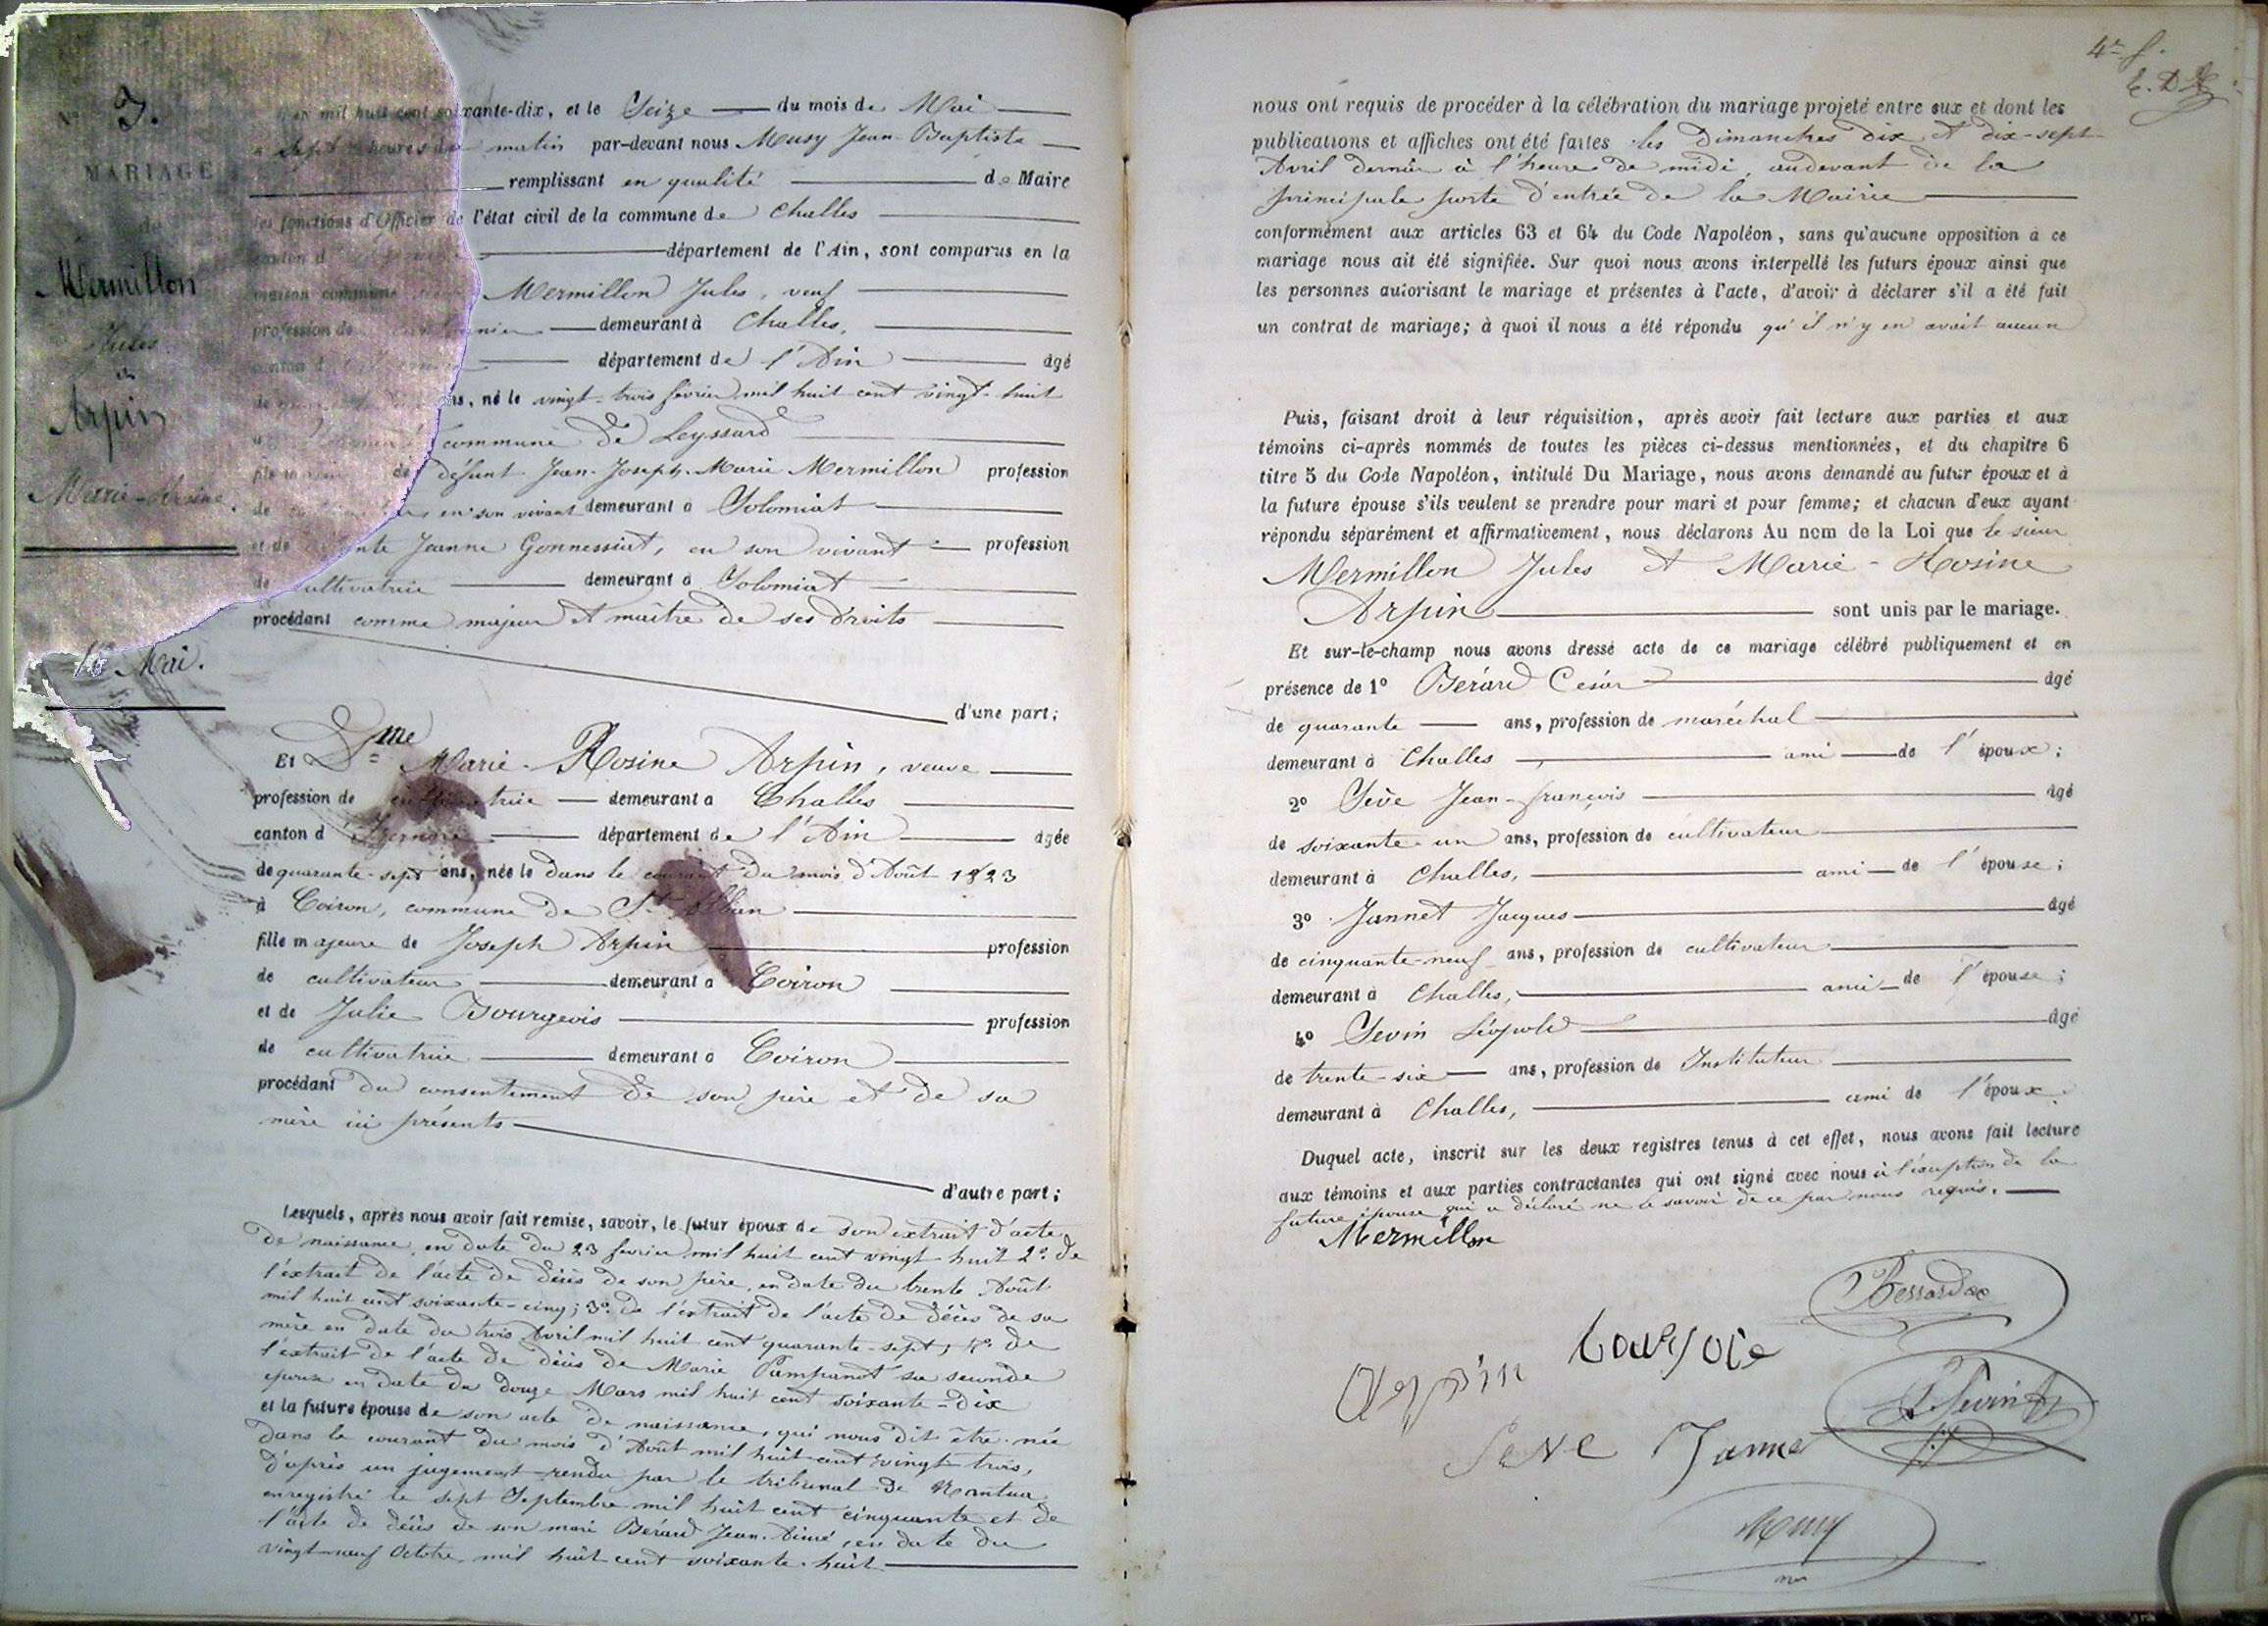 N° 3.
MARIAGE
de
Mermillon
Jules
&
Arpin
Marie-Rosine.
16 Mai.
L'an mil huit cent soixante-dix, et le Seize du mois de Mai
à sept heures du matin par-devant nous Musy Jean-Baptiste
remplissant en qualité de Maire
les fonctions d'Officier de l'état civil de la commune de Challes
canton d département de l'Ain, sont comparus en la
maison commune Mermillon Jules, veuf
profession de demeurant à Challes,
canton d département de l'Ain âgé
de ans, né le vingt-trois février mil huit cent vingt-huit
à commune de Leyssard
fils majeur de défunt Jean-Joseph-Marie Mermillon profession
de en son vivant demeurant à Solomiat
et de Jeanne Gonnessiat, en son vivant profession
de cultivatrice demeurant à Solomiat
procédant comme majeur et maître de ses droits
d'une part;
Et Dme Marie-Rosine Arpin, veuve
profession de cultivatrice demeurant à Challes
canton d'Izernore département de l'Ain âgée
de quarante-sept ans, née le dans le courant du mois d'Août 1823
à Coiron, commune de St Alban
fille majeure de Joseph Arpin profession
de cultivateur demeurant à Coiron
et de Julie Bourgeois profession
de cultivatrice demeurant à Coiron
procédant du consentement de son père et de sa
mère ici présents
d'autre part;
Lesquels, après nous avoir fait remise, savoir, le futur époux de son extrait d'acte
de naissance en date du 23 février mil huit cent vingt-huit 2° de
l'extrait de l'acte de décès de son père, en date du trente Août
mil huit cent soixante-cinq; 3° de l'extrait de l'acte de décès de sa
mère en date du trois Avril mil huit cent quarante-sept; 4° de
l'extrait de l'acte de décès de Marie Pampanot sa seconde
épouse en date du douze Mars mil huit cent soixante-dix
et la future épouse de son acte de naissance, qui nous dit être née
dans le courant du mois d'Août mil huit cent vingt trois,
d'après un jugement rendu par le tribunal de Nantua
enregistré le sept Septembre mil huit cent cinquante et de
l'acte de décès de son mari Berard Jean-Aimé, en date du
vingt-neuf Octobre mil huit cent soixante-huit
4e f.
nous ont requis de procéder à la célébration du mariage projeté entre eux et dont les
publications et affiches ont été faites les Dimanches dix et dix-sept
Avril dernier à l'heure de midi, audevant de la
principale porte d'entrée de la Mairie
conformément aux articles 63 et 64 du Code Napoléon, sans qu'aucune opposition à ce
mariage nous ait été signifiée. Sur quoi nous avons interpellé les futurs époux ainsi que
les personnes autorisant le mariage et présentes à l'acte, d'avoir à déclarer s'il a été fait
un contrat de mariage; à quoi il nous a été répondu qu'il n'y en avait aucun
Puis, faisant droit à leur réquisition, après avoir fait lecture aux parties et aux
témoins ci-après nommés de toutes les pièces ci-dessus mentionnées, et du chapitre 6
titre 5 du Code Napoléon, intitulé Du Mariage, nous avons demandé au futur époux et à
la future épouse s'ils veulent se prendre pour mari et pour femme; et chacun d'eux ayant
répondu séparément et affirmativement, nous déclarons Au nom de la Loi que le sieur
Mermillon Jules et Marie-Rosine
Arpin sont unis par le mariage.
Et sur-le-champ nous avons dressé acte de ce mariage célébré publiquement et en
présence de 1° Bérard César âgé
de quarante ans, profession de maréchal
demeurant à Challes ami de l'époux;
2° Sève Jean-françois âgé
de soixante-un ans, profession de cultivateur
demeurant à Challes, ami de l'épouse;
3° Jannet Jacques âgé
de cinquante-neuf ans, profession de cultivateur
demeurant à Challes, ami de l'épouse;
4° Sevin Léopold âgé
de trente-six ans, profession de Instituteur
demeurant à Challes, ami de l'époux.
Duquel acte, inscrit sur les deux registres tenus à cet effet, nous avons fait lecture
aux témoins et aux parties contractantes qui ont signé avec nous à l'exception de la
future épouse qui a déclaré ne le savoir de ce par nous requis.
Mermillon
Arpin
Seve Janne
Sevin
Musy